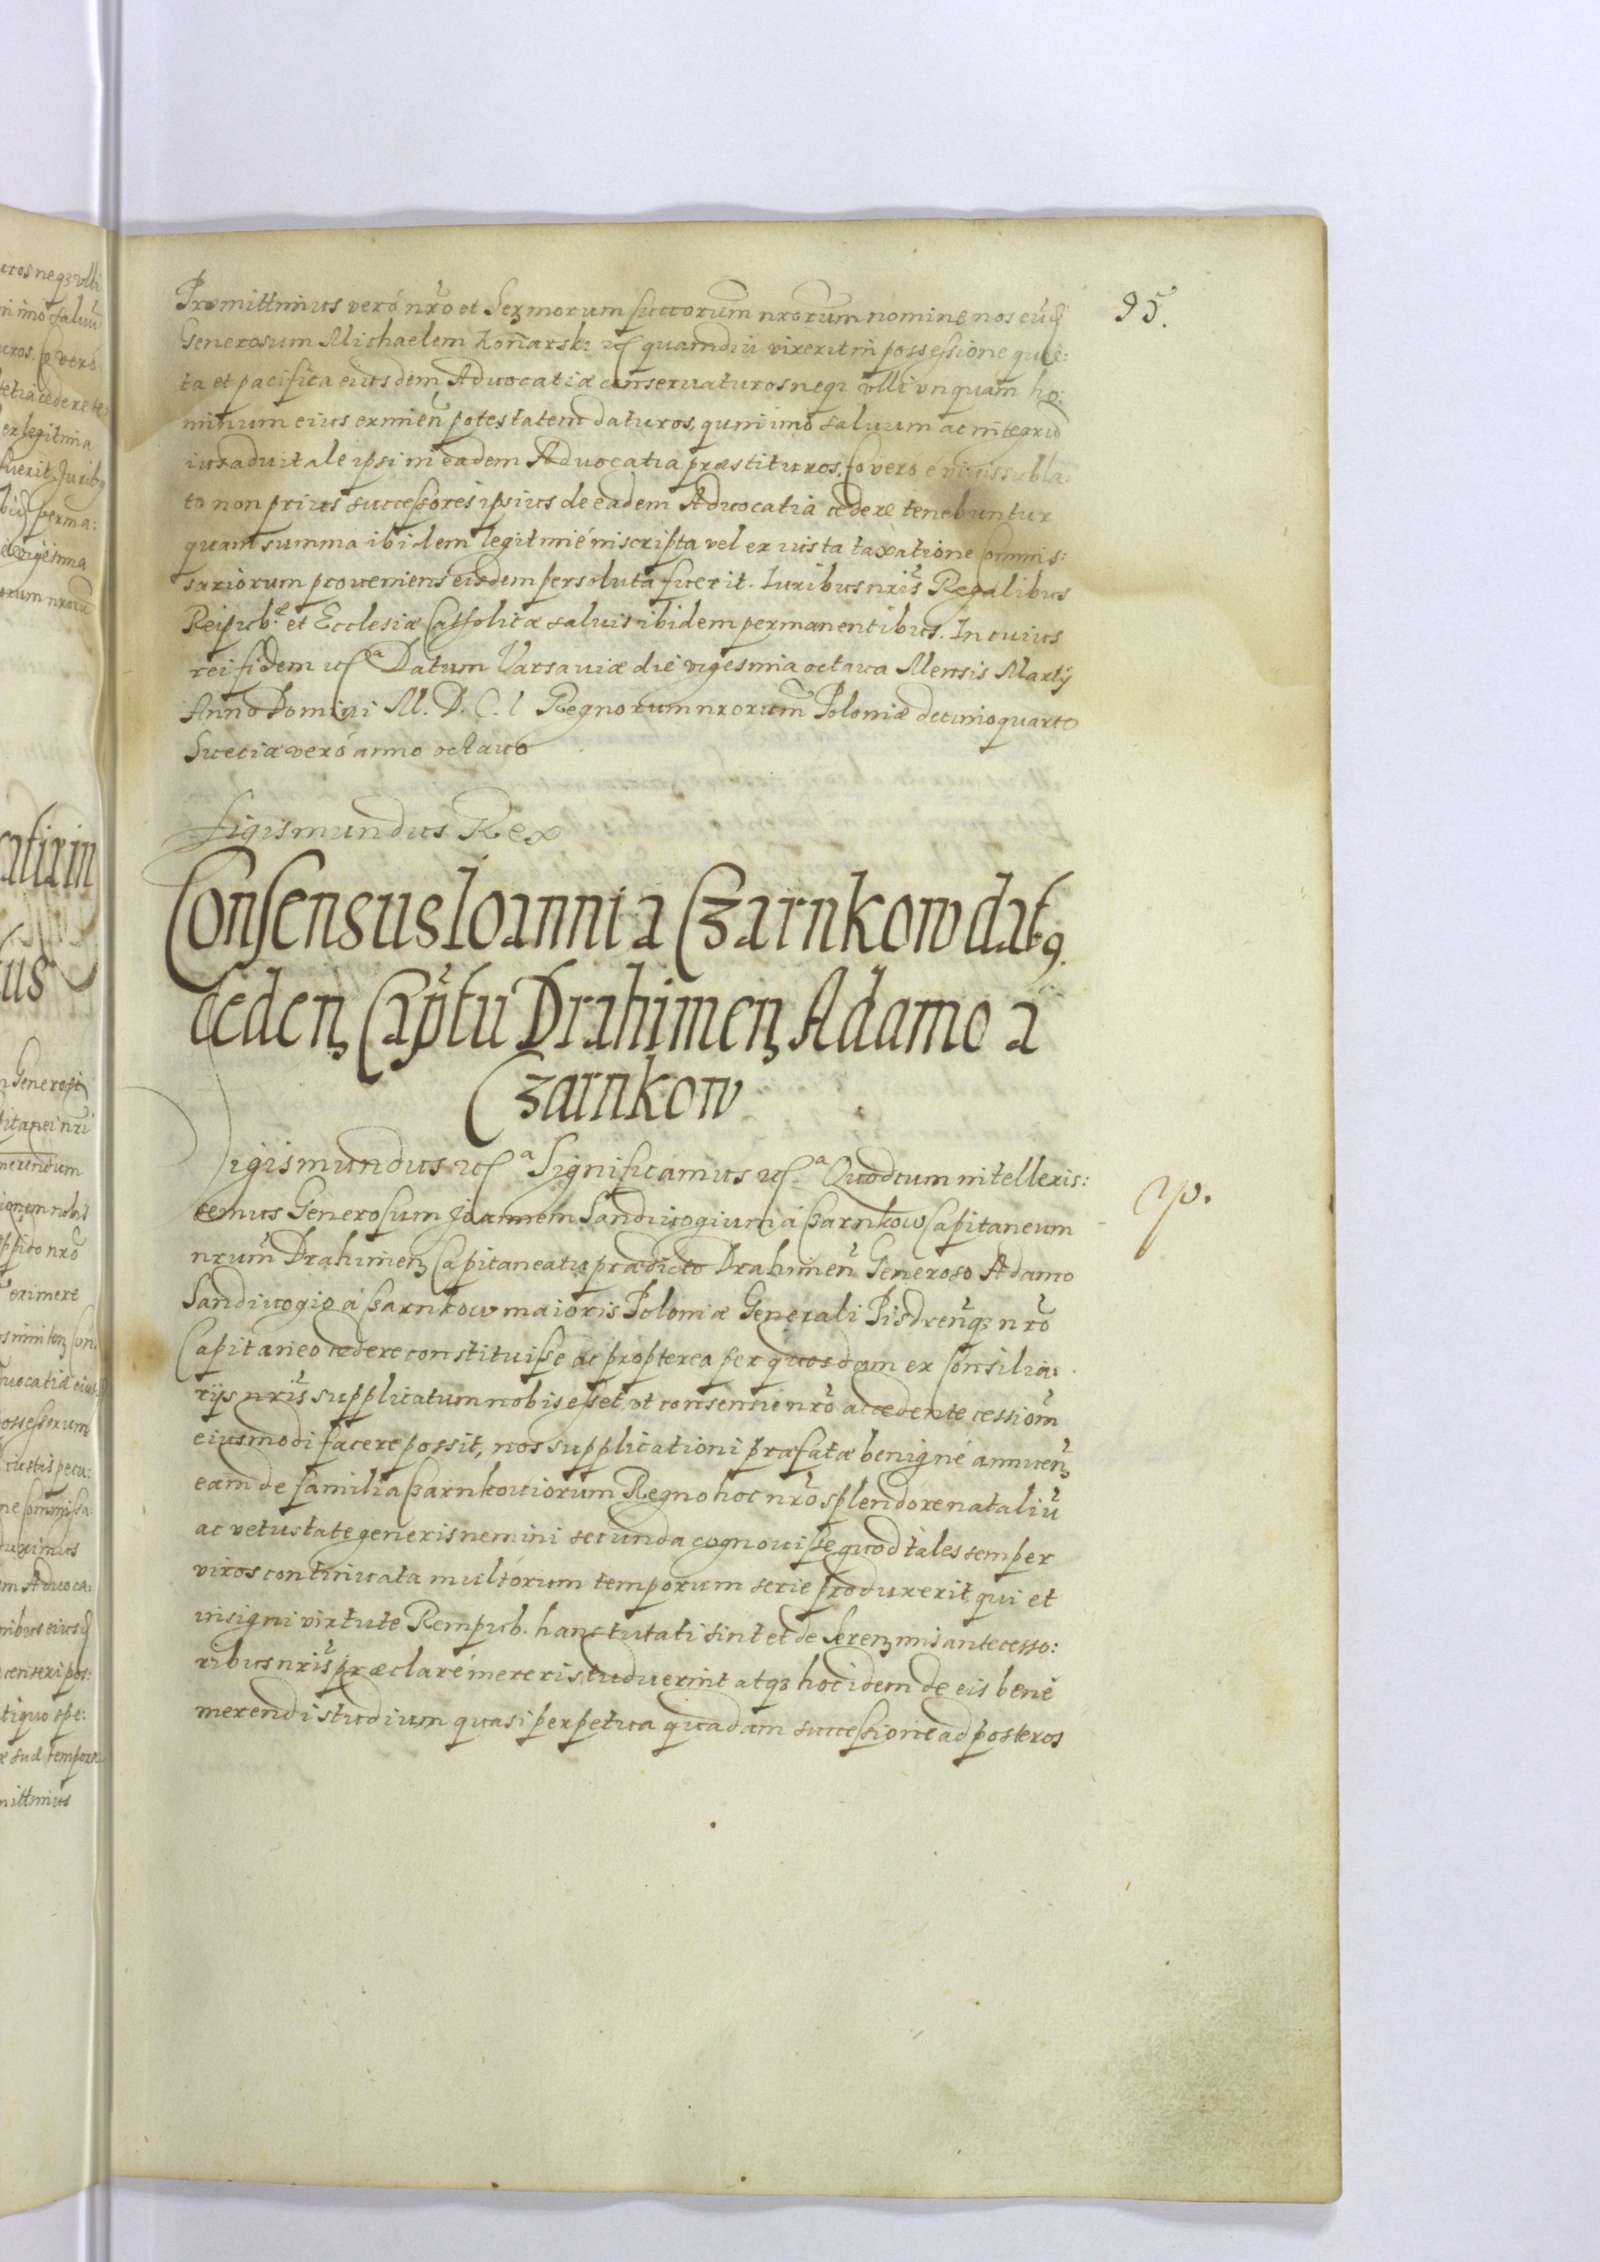 95.
Promittimus vero nr̃o et Sermorum succorum nrorum nomine nos eund
Generosum Michaelem Konarski etc quamdiu vixerit in possessione quie:
ta et pacifica eiusdem Advocatiæ conservaturos neq; vlli vnquam ho:
minum eius eximen̄ potestatem daturos, quin imo saluum ac integrum
ius aduitale ipsi in eadem Advocatia præstituros. Eo vero é viuis subla:
to non prius successores ipsius de eadem Advocatia cedere tenebuntur
quam summa ibidem legitimé inscripta vel ex iusta taxatione Commis:
sariorum proueniens eisdem persoluta fuerit. Iuribus nris̃ Regalibus
Reipub: et Ecclesiæ Catholicæ saluis ibidem permanentibus. In cuius
rei fidem etc.ª Datum Varsauiæ die vigesima octaua Mensis Martÿ
Anno Domini M. D. C. I Regnorum nrorum Poloniæ decimoquarto
Sueciæ veró anno octauo
Sigismundus Rex
Consensus Ioanni a Czarnkow dat9.
cedeñ Captũ Drahimeñ Adamo a
Czarnkow
Sigismundus etc.ª Significamus etc.ª Quod cum intellexis:
semus Generosum Joannem Sandiuogium á Czarnkow Capitaneum
nrum̃ Drahimeñ Capitaneatu prædicto Drahimeñ Generoso Adamo
Sandiuogio á Czarnkow maioris Poloniæ Generali Pisdreñq; nr̃o
Capitaneo cedere constituisse ac propterea per quosdam ex Consilia:
rijs nris̃ supplicatum nobis esset, vt consensu nr̃o accedente cessiom̃
eiusmodi facere possit, nos supplicationi præfatæ benigné annueñ
eam de familia Czarnkouiorum Regno hoc nr̃o splendore nataliũ
ac vetustate generis nemini secunda cognouisse quod tales semper
viros continuata multorum temporum serie produxerit, qui et
insigni virtute Rempub. hanc tutati sint et de Sereñmis antecesso:
ribus nris̃ præclaré mereri studuerint atq; hoc idem de eis bene
merendi studium quasi perpetua quadam successione ad posteros